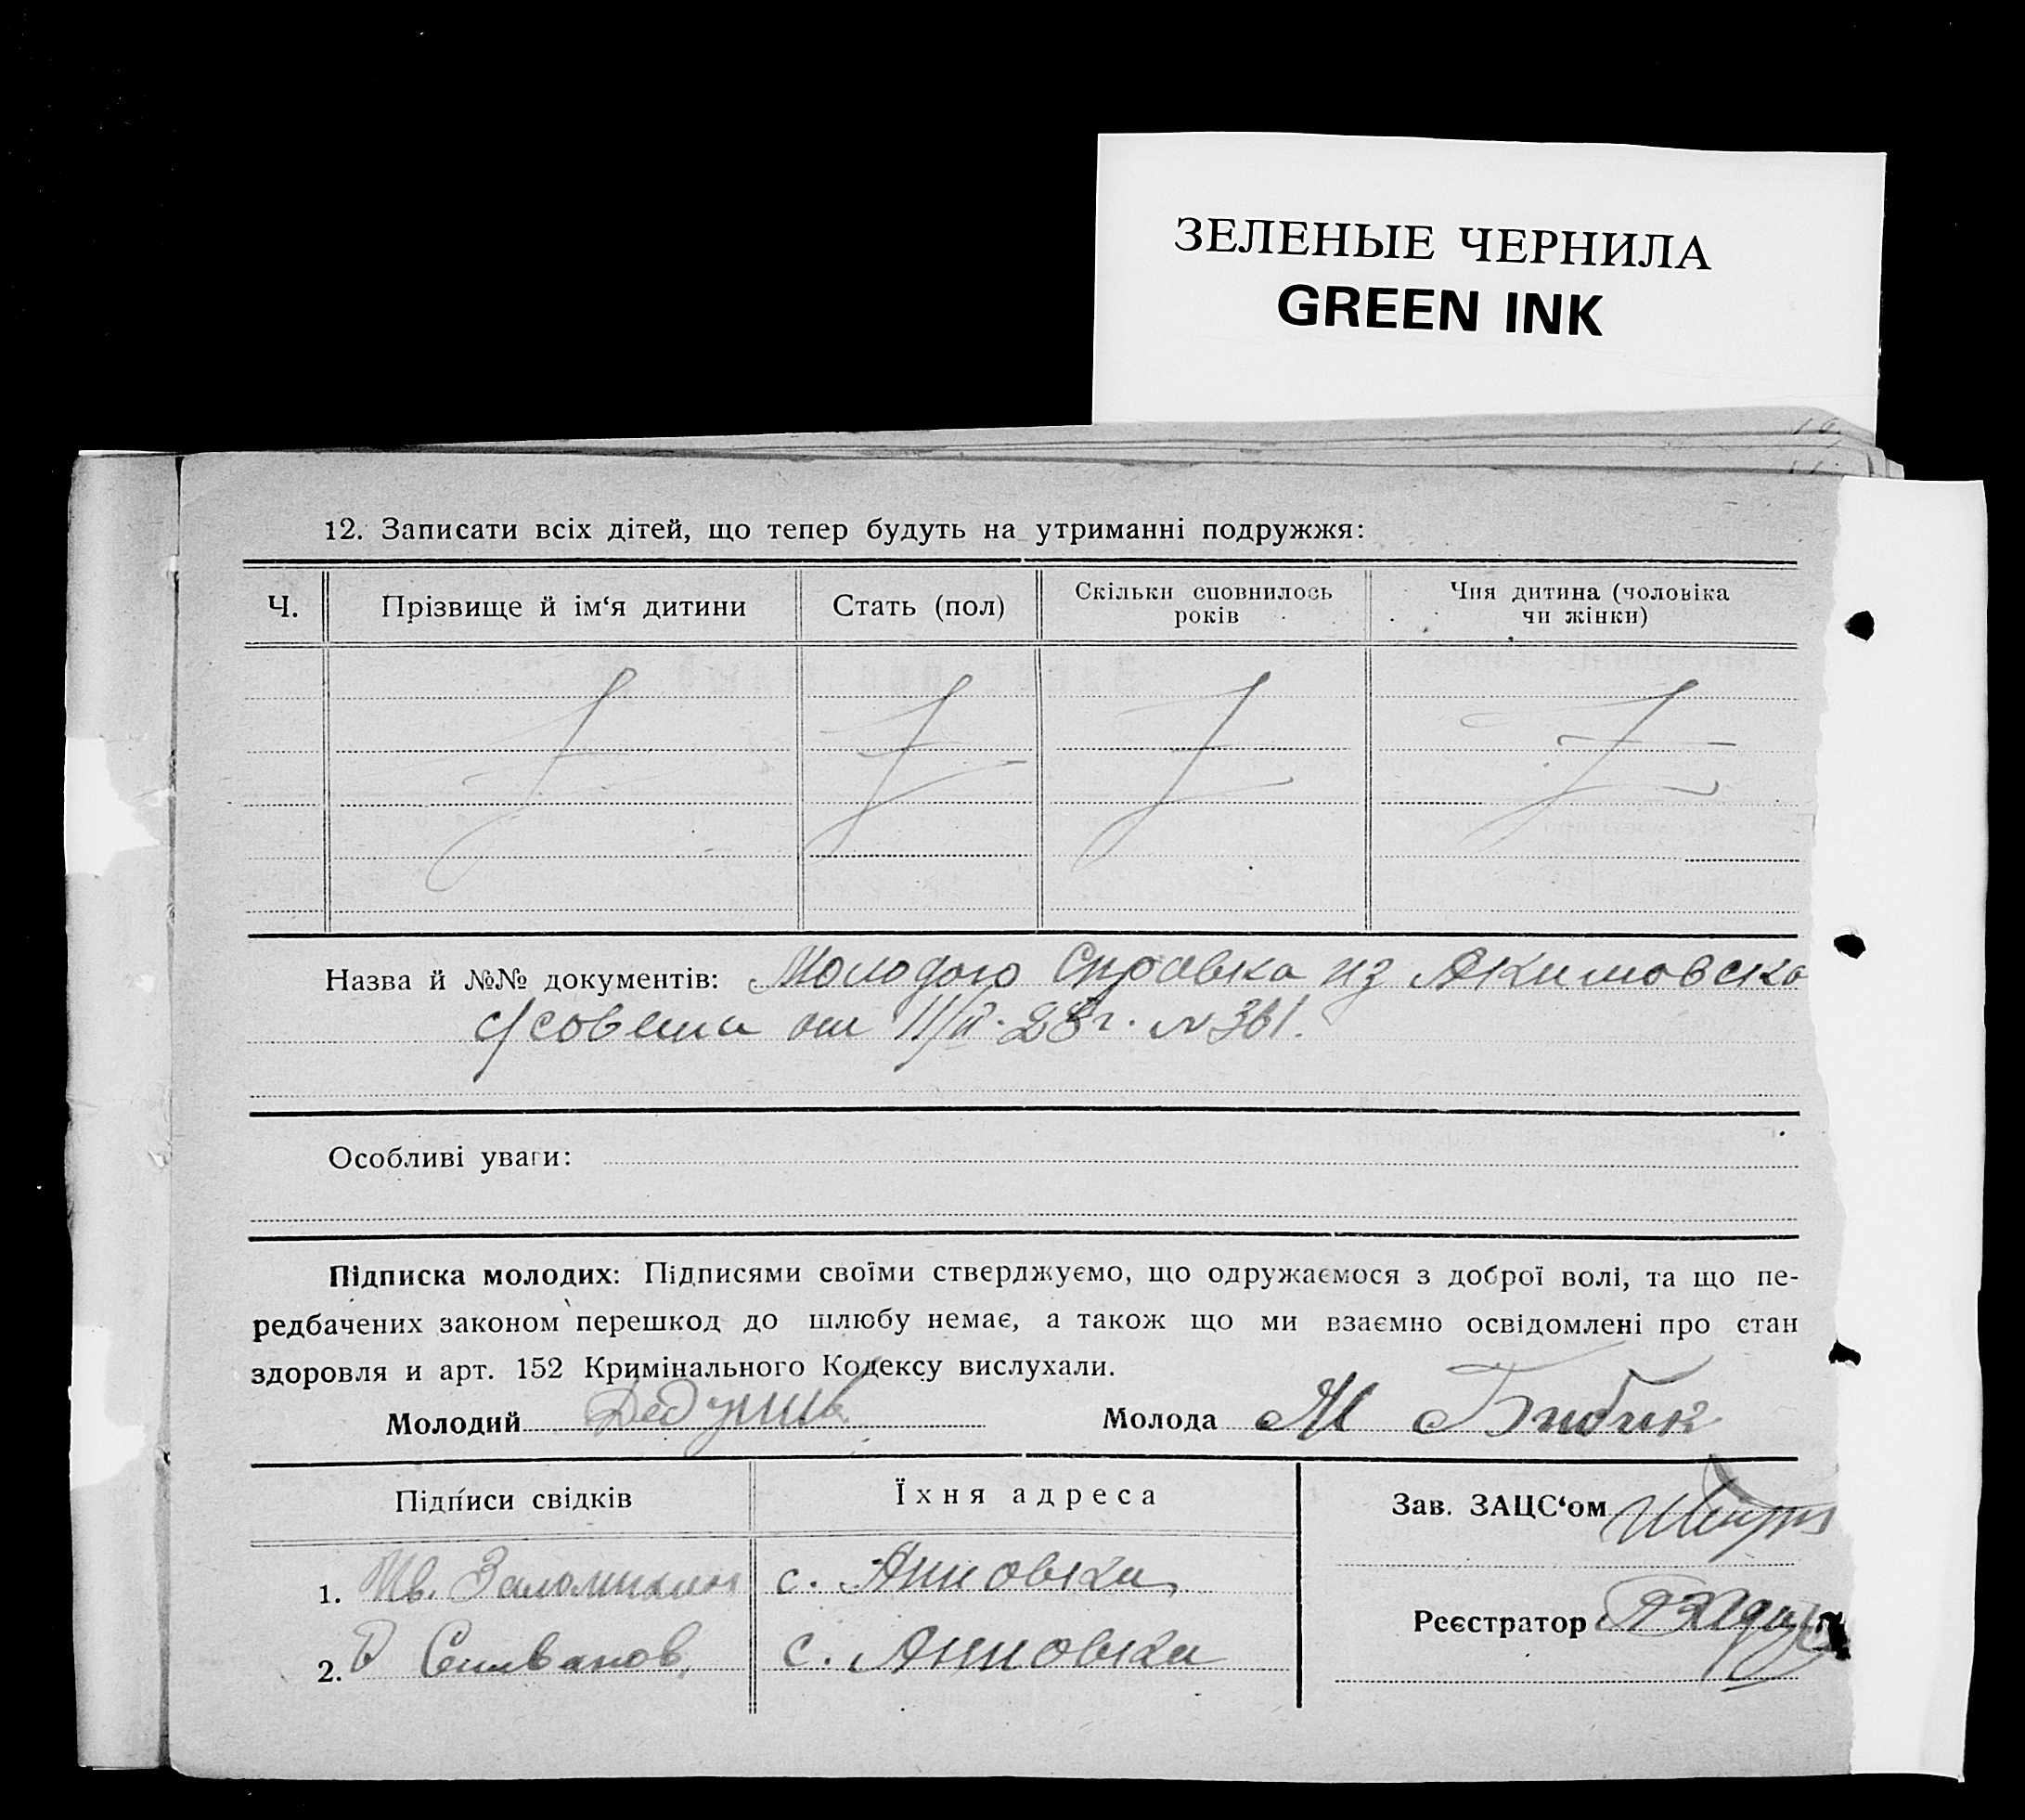 ЗЕЛЕНЫЕ ЧЕРНИЛА
GREEN INK
12. Записати всіх дітей, що тепер будуть на утриманні подружжя:
Ч. Прізвище й ім‘я дитини Стать (пол) Скільки сповнилось років Чия дитина (чоловіка чи жінки)
Назва й №№ документів: Молодого Справка из Акимовско
с/совета от 11/II-28 г. № 361.
Особливі уваги:
Підписка молодих: Підписями своїми стверджуємо, що одружаємося з доброї волі, та що пе-
редбачених законом перешкод до шлюбу немає, а також що ми взаємно освідомлені про стан
здоровля и арт. 152 Кримінального Кодексу вислухали.
Молодий Молода М Бибик
Підписи свідків Їхня адреса Зав. ЗАЦС‘ом
1. Ив. с. Анновка
Реєстратор
2. Селиванов с. Анновка